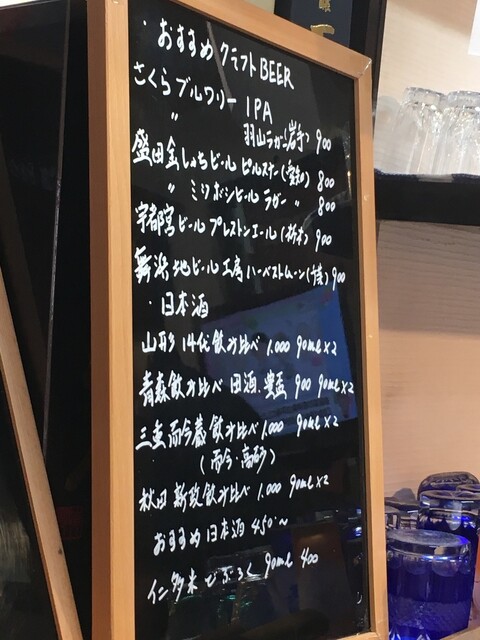 ・おすすめ クラフトBEER
さくらブルワリー IPA
〃 羽山ラガー(岩手) 900
盛田金しゃちビール ピルスナー(愛知) 800
〃 ミツボシビール ラガー 〃 800
宇都宮ビール プレストンエール(栃木) 900
舞浜地ビール工房 ハーベストムーン(千葉) 900
・日本酒
山形 14代飲み比べ 1.000 90ml×2
青森飲み比べ 田酒.豊盃 900 90ml×2
三重而今蔵飲み比べ 1.000 90ml×2
(而今・高砂)
秋田 新政飲み比べ 1.000 90ml×2
おすすめ日本酒 450~
仁多米どぶろく 90ml 400